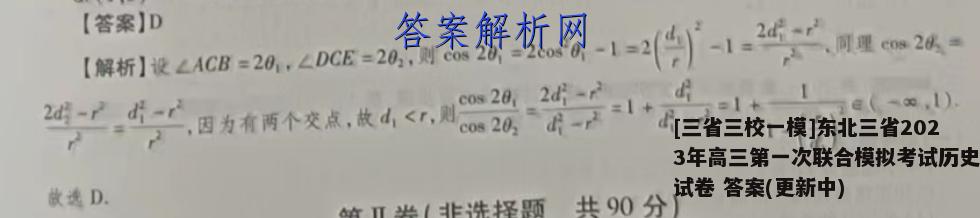 【答案】D
答案解析网
【解析】设∠ACB=2θ₁,∠DCE=2θ₂,则 cos 2θ₁=2cos²θ₁-1=2(d₁/r)²-1=(2d₁²-r²)/r²,同理 cos 2θ₂=
(2d₂²-r²)/r²=(d₁²-r²)/r²,因为有两个交点,故 d₁<r,则 cos 2θ₁/cos 2θ₂=(2d₁²-r²)/(d₁²-r²)=1+d₁²/ =1+ 1/ ∈(-∞,1).
[三省三校一模]东北三省202
3年高三第一次联合模拟考试历史
试卷 答案(更新中)
故选 D.
第Ⅱ卷(非选择题 共90分)